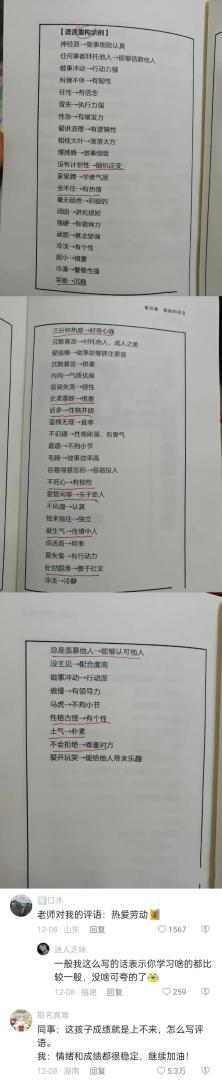 【语言重构示例】
神经质→做事细致认真
任何事都拜托他人→能够信赖他人
做事冲动→行动力强
纠缠不休→有韧性
任性→有信念
冒失→执行力强
性急→有爆发力
爱讲道理→有逻辑性
粗枝大叶→落落大方
慢腾腾→做事细致
没有计划性→随机应变
家里蹲→学者气质
坐不住→有热情
毫无顾虑→积极的
顽固→讲究规矩
强硬→有领导力
顽固→意志坚强
冷淡→有个性
胆小→慎重
冷漠→警惕性强
呆板→沉稳
三分钟热度→好奇心强
沉默寡言→衬托他人、成人之美
爱偷懒→做事能够抓住要领
沉默寡言→稳重
内向→气质优雅
容易失落→感性
优柔寡断→慎重
话多→性格开朗
蛮横无理→直率
不识趣→性格刚强、有骨气
邋遢→不拘小节
毛躁→做事效率高
容易得意忘形→容易投入
不死心→有韧性
爱管闲事→乐于助人
不风趣→认真
独来独往→独立
爱生气→性情中人
说话直→坦率
冒失鬼→有行动力
处世圆滑→善于社交
冷淡→冷静
总是羡慕他人→能够认可他人
没主见→配合度高
做事冲动→行动派
傲慢→有领导力
马虎→不拘小节
性格古怪→有个性
土气→朴素
不会拒绝→尊重对方
爱开玩笑→能给他人带来乐趣
口水
老师对我的评语：热爱劳动
12-08 · 山东 回复 1567
迷人乏味.
一般我这么写的话表示你学习啥的都比
较一般，没啥可夸的了
12-08 · 福建 回复 259
取名真难
同事：这孩子成绩就是上不来，怎么写评
语。
我：情绪和成绩都很稳定，继续加油！
12-08 · 湖南 回复 5.3万